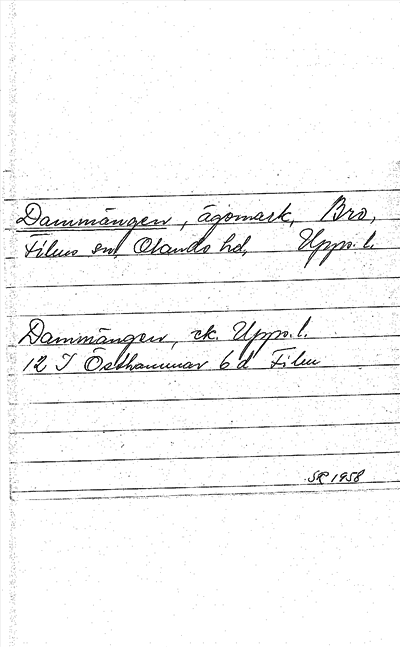 Dammängen, ägomark, Bro,
Films sn, Olands hd, Upps. l.
Dammängen, ek. Upps. l.
12 I Östhammar 6 d Film
SR 1958